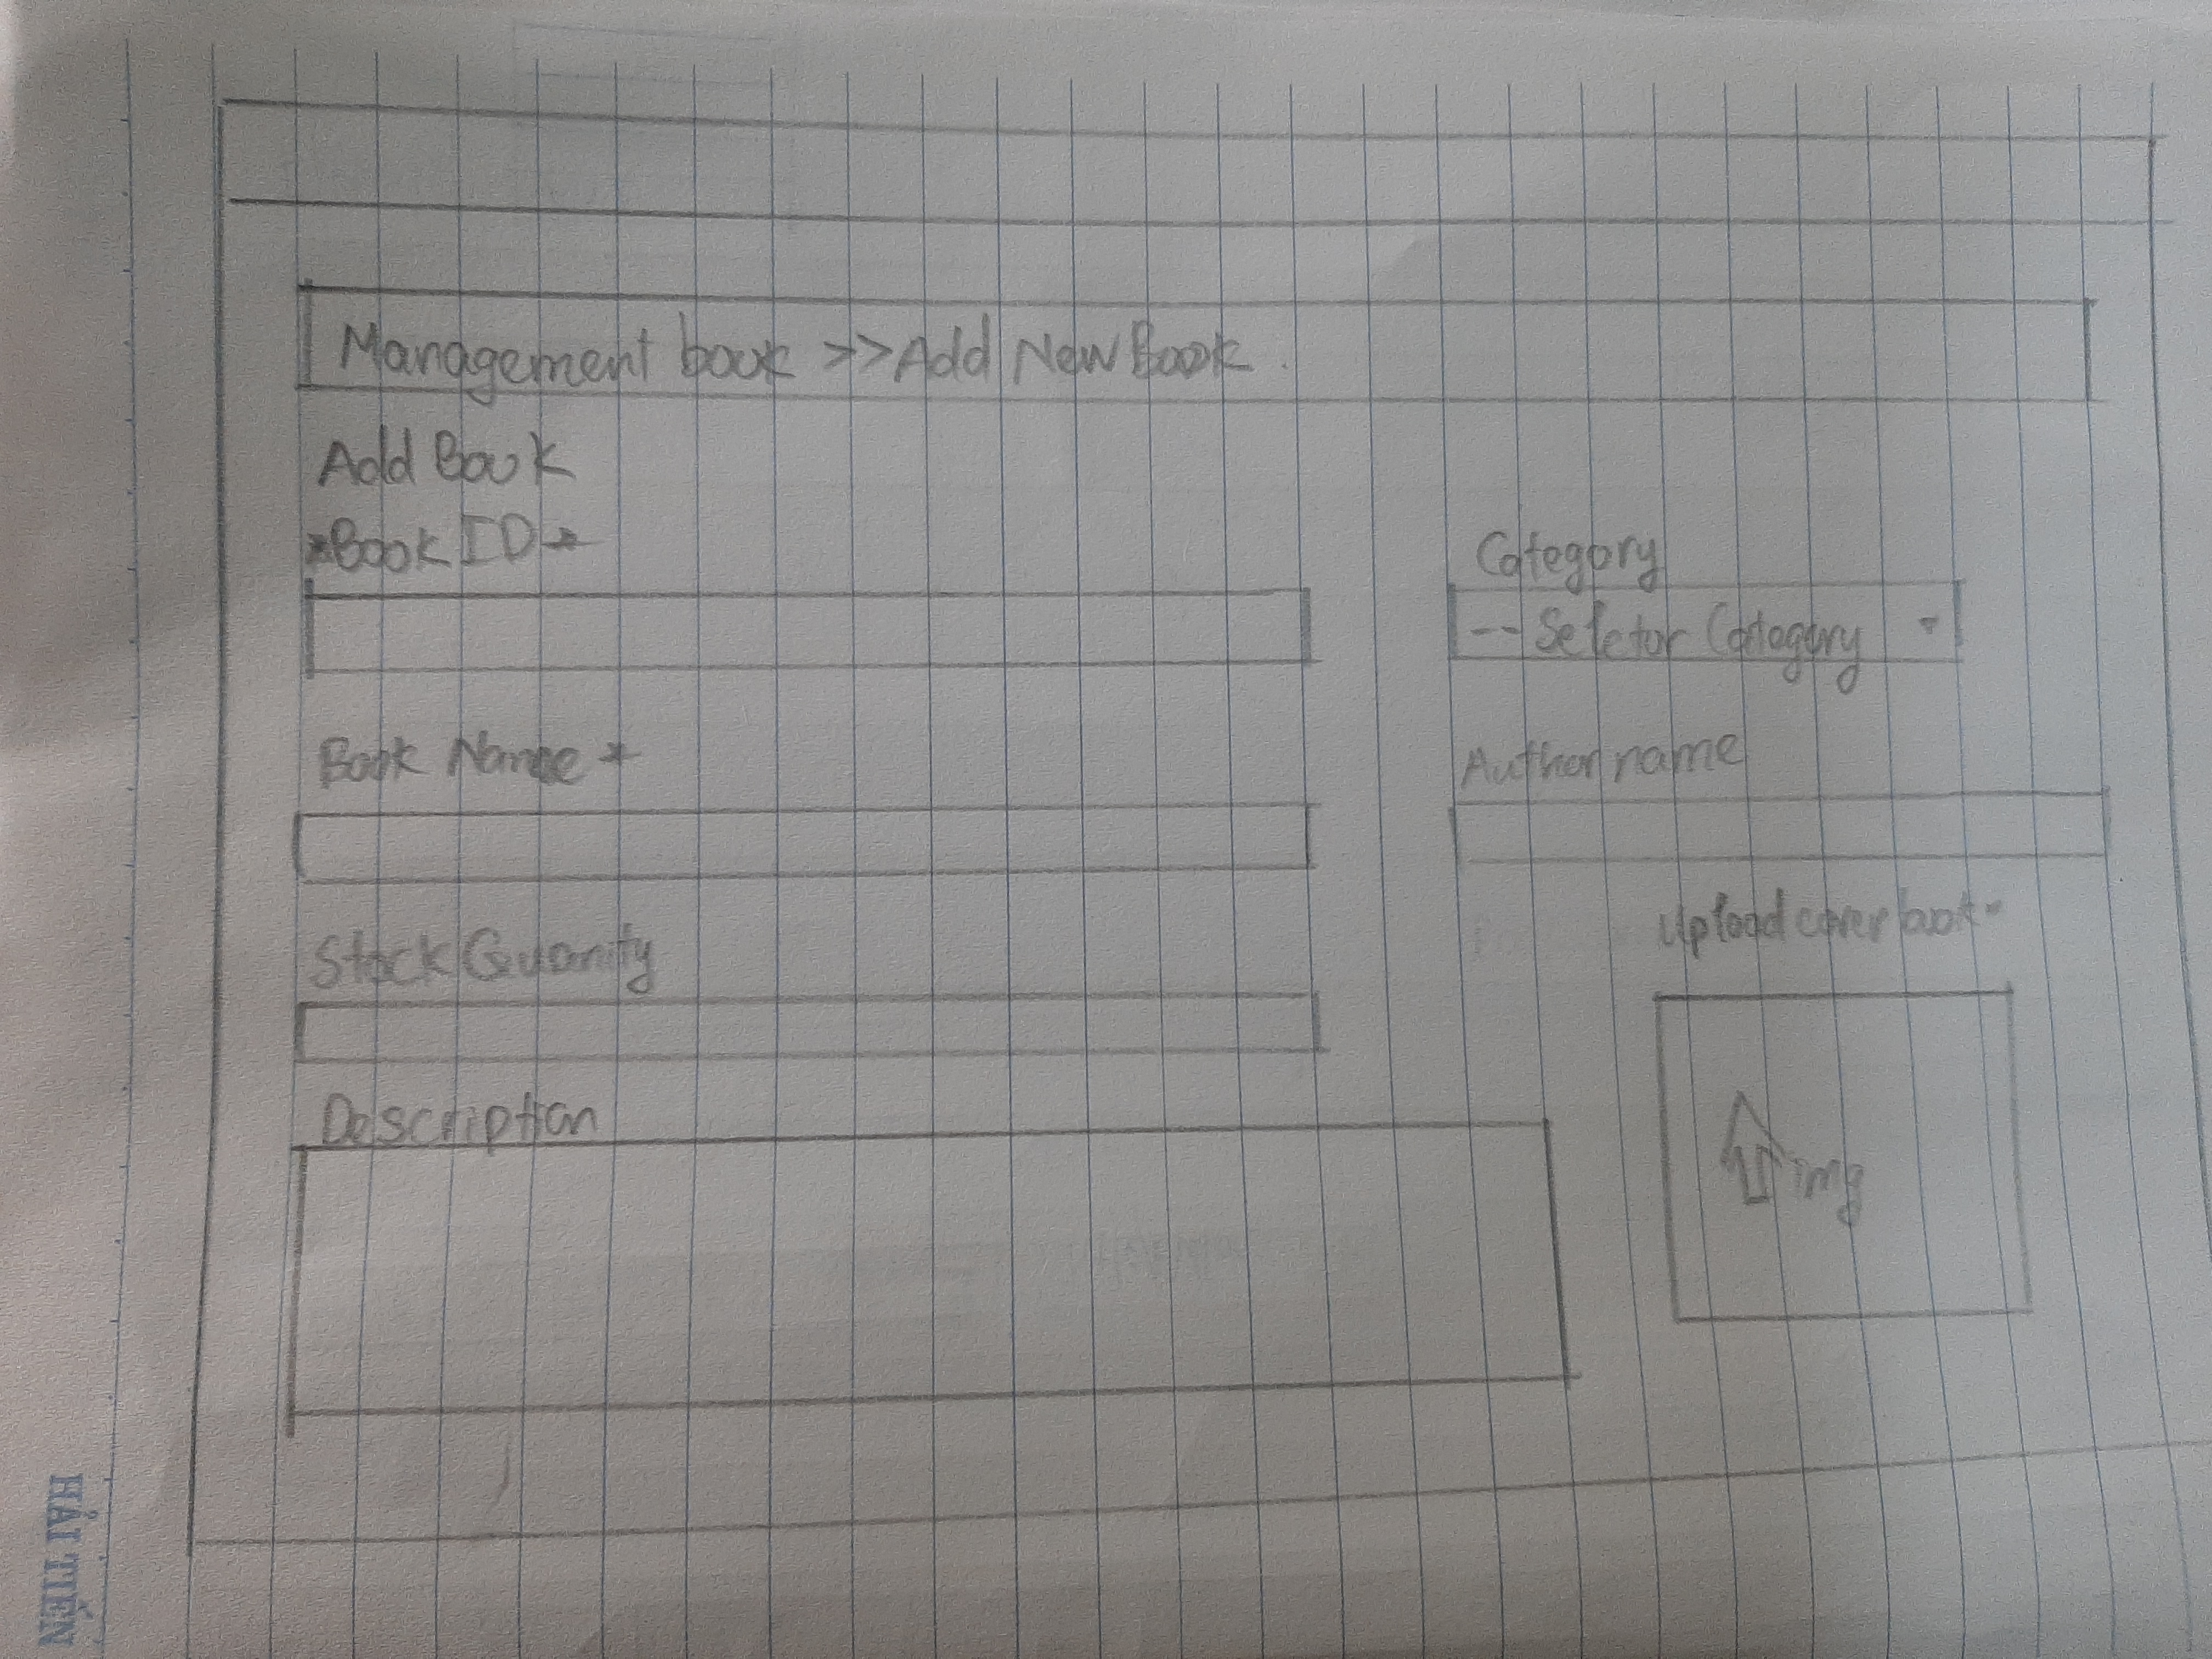 Management book >> Add New Book.
Add Book
*Book ID*
Category
--- Seletor Catagory
Book Name *
Author name
Stock Quanity
Upload cover book
img
Description
HẢI TIẾN